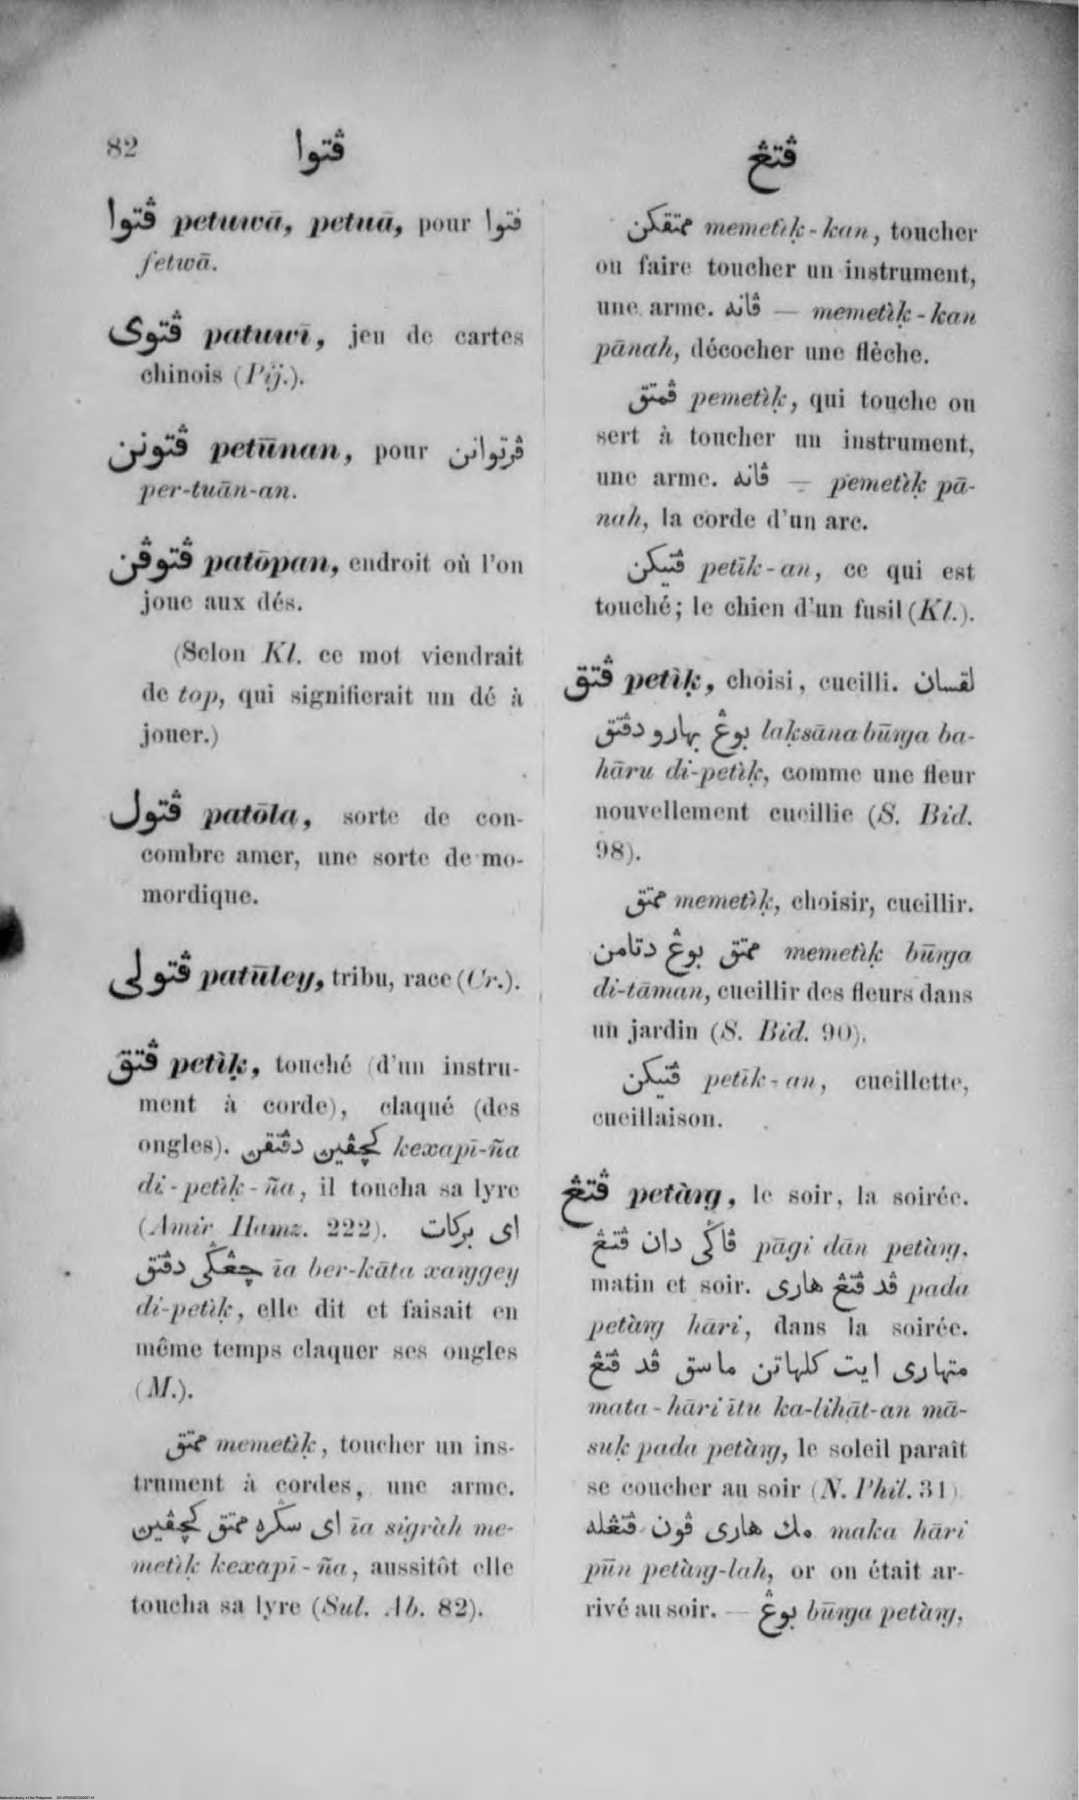 82
ڤتوا
ڤتڠ
ڤتوا petuwā, petuā, pour فتوا
fetwā.
ڤتوی patuwī, jeu de cartes
chinois (Pij.).
ڤتونن petūnan, pour ڤرتوانن
per-tuān-an.
ڤتوڤن patōpan, endroit où l'on
joue aux dés.
(Selon Kl. ce mot viendrait
de top, qui signifierait un dé à
jouer.)
ڤتول patōla, sorte de con-
combre amer, une sorte de mo-
mordique.
ڤتولی patūley, tribu, race (Cr.).
ڤتق petìḳ, touché (d'un instru-
ment à corde), claqué (des
ongles). کچڤين دڤتقن kexapī-ña
di-petìḳ-ña, il toucha sa lyre
(Amir Hamz. 222). ای برکات
چڠݢی دڤتق īa ber-kāta xaṃggey
di-petìḳ, elle dit et faisait en
même temps claquer ses ongles
(M.).
ممتق memetìḳ, toucher un ins-
trument à cordes, une arme.
ای سݢره ممتق کچڤين īa sigràh me-
metìḳ kexapī-ña, aussitôt elle
toucha sa lyre (Sul. Ab. 82).
ممتقکن memetìḳ-kan, toucher
ou faire toucher un instrument,
une arme. ڤانه — memetìḳ-kan
pānah, décocher une flèche.
ڤمتق pemetìḳ, qui touche ou
sert à toucher un instrument,
une arme. ڤانه — pemetìḳ pā-
nah, la corde d'un arc.
ڤتيکن petīk-an, ce qui est
touché; le chien d'un fusil (Kl.).
ڤتق petìḳ, choisi, cueilli. لقسان
بوڠ بهارو دڤتق laḳsāna būṃga ba-
hāru di-petìḳ, comme une fleur
nouvellement cueillie (S. Bid.
98).
ممتق memetìḳ, choisir, cueillir.
ممتق بوڠ دتامن memetìḳ būṃga
di-tāman, cueillir des fleurs dans
un jardin (S. Bid. 90).
ڤتيکن petīk-an, cueillette,
cueillaison.
ڤتڠ petàrg, le soir, la soirée.
ڤاݢی دان ڤتڠ pāgi dān petàrg,
matin et soir. ڤد ڤتڠ هاری pada
petàrg hāri, dans la soirée.
متهاری ايت کلهاتن ماسق ڤد ڤتڠ
mata-hāri ītu ka-lihāt-an mā-
suḳ pada petàrg, le soleil paraît
se coucher au soir (N. Phil. 31)
مك هاری ڤون ڤتڠله maka hāri
pūn petàrg-lah, or on était ar-
rivé au soir. — بوڠ būrga petàrg,